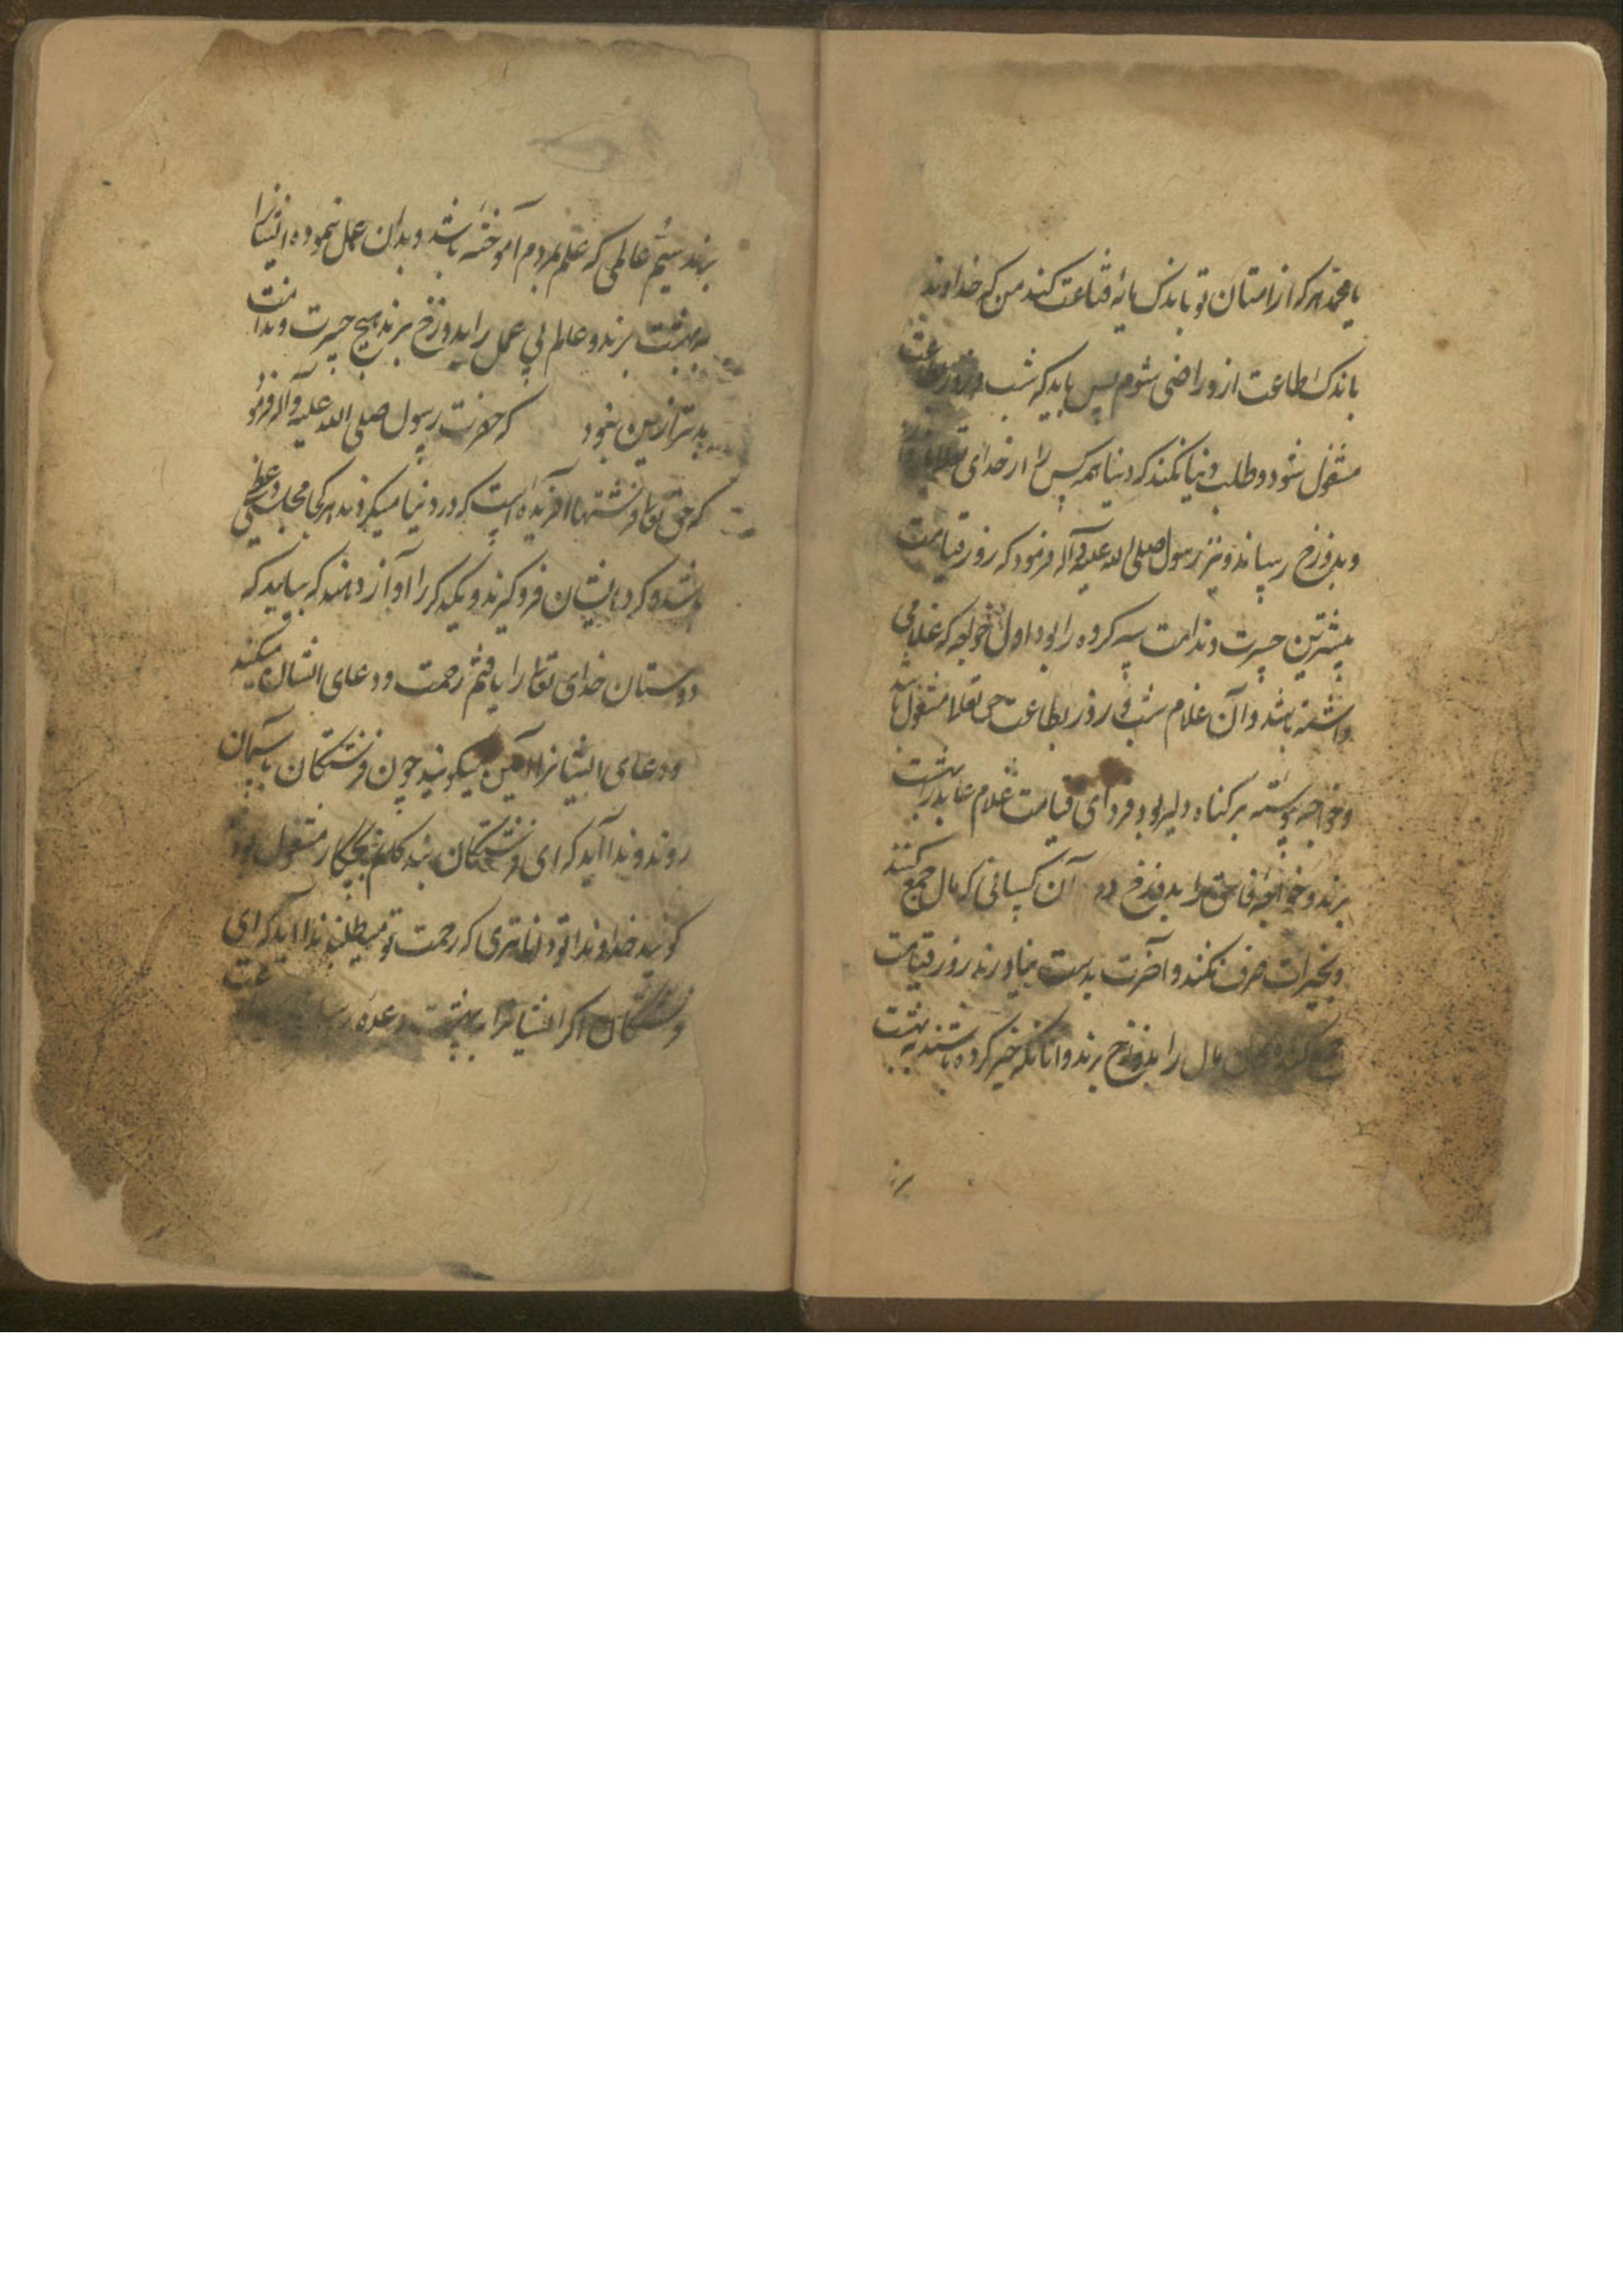 یا محمد هر که از امتان تو باندک مایه قناعت کند من که خداوندم
باندک طاعت ازو راضی شوم پس باید که شب و روز بطاعت
مشغول شود و طلب دنیا نکند که دنیا همه کس را از خدای تعالی
و بدوزخ رساند و نیز رسول صلی الله علیه و آله فرمود که روز قیامت
بیشترین حسرت و ندامت سه کروه را بود اول خواجه که غلامی
داشته باشد و آن غلام شب و روز بطاعت حق تعالا مشغول باشد
و خواجه پیوسته بر کناه دلیر بود فردای قیامت غلام عابد را بهشت
برند و خواجهٔ فاسق را بدوزخ دوم آن کسانی که مال جمع کنند
و بخیرات صرف نکنند و آخرت بدست نیاورند روز قیامت
جمع کنندکان مال را بدوزخ برند و آنانکه خیر کرده باشند به بهشت
برند
برند سیم عالمی که علم بمردم آموخته باشد و بدان عمل ننموده ایشانرا
به بهشت برند و عالم بی عمل را بدوزخ برند هیچ حسرت و ندامت
بدتر ازین نبود که حضرت رسول صلی الله علیه و آله فرمود
که حق تعالی فرشتها آفریده است که در دنیا میکردند هر کجا مجلس وعظی
باشد کرد ایشان فرو کیرند و یکدیکر را آواز دهند که بیایید که
دوستان خدای تعالی را یافتیم رحمت و دعای ایشان میکنند
و دعای ایشانرا آمین میکویند چون فرشتکان باسمان
روند ندا آید که ای فرشتکان بندکانم بچکار مشغول بودند
کویند خداوندا تو داناتری که رحمت تو میطلبند ندا آید که ای
فرشتکان اکر ایشانرا به بهشت وعده